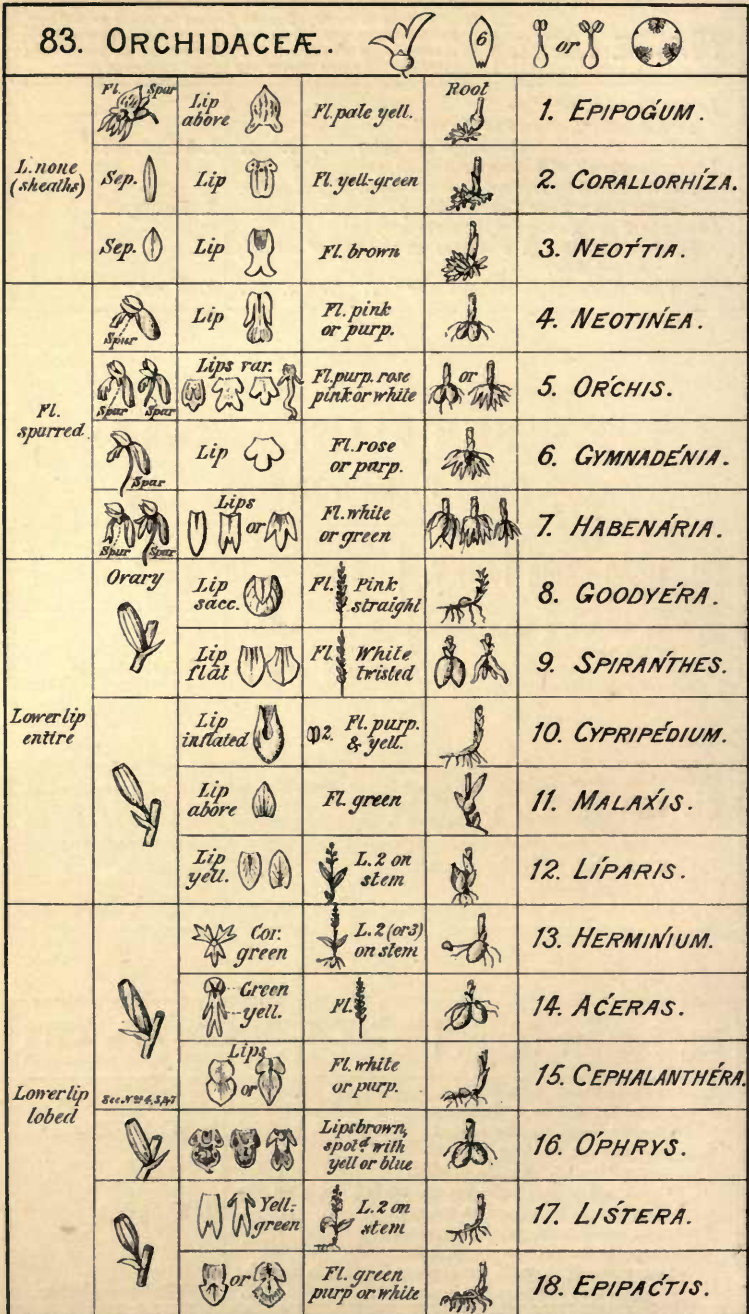 83. ORCHIDACEÆ. 6 or
L. none
(sheaths)
Fl. Spur
Lip
above
Fl. pale yell.
Root
1. EPIPOǴUM.
Sep.
Lip
Fl. yell-green
2. CORALLORHÍZA.
Sep.
Lip
Fl. brown
3. NEOT́TIA.
Fl.
spurred
Spur
Lip
Fl. pink
or purp.
4. NEOTIŃEA.
Spur Spur
Lips var.
Fl. purp. rose
pink or white
or
5. OŔCHIS.
Spur
Lip
Fl. rose
or purp.
6. GYMNADÉNIA.
Spur Spur
Lips
or
Fl. white
or green
7. HABENÁRIA.
Lower lip
entire
Ovary
Lip
sacc.
Fl. Pink
straight
8. GOODYÉRA.
Lip
flat
Fl. White
twisted
9. SPIRAŃTHES.
Lip
inflated
2. Fl. purp.
& yell.
10. CYPRIPÉDIUM.
Lip
above
Fl. green
11. MALAX́IS.
Lip
yell.
L. 2 on
stem
12. LÍPARIS.
Lower lip
lobed
Cor.
green
L. 2 (or 3)
on stem
13. HERMIŃIUM.
Green
yell.
Fl.
14. AĆERAS.
See Nos 4, 5, & 7
Lips
or
Fl. white
or purp.
15. CEPHALANTHÉRA.
Lips brown,
spotd with
yell or blue
16. ÓPHRYS.
Yell-
green
L. 2 on
stem
17. LIŚTERA.
or
Fl. green
purp or white
18. EPIPAĆTIS.